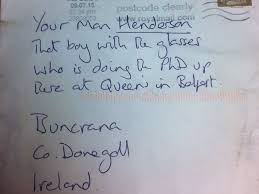 09.07.15
postcode clearly
www.royalmail.com
Your Man Henderson
That boy with the glasses
who is doing the PhD up
here at Queens in Belfast.
Buncrana
Co. Donegall
Ireland.